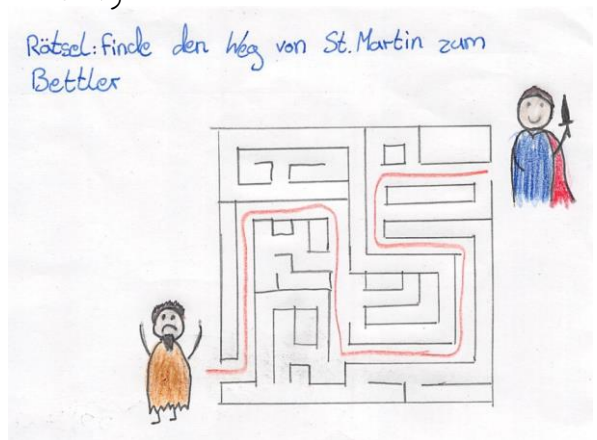 Rätsel: finde den Weg von St. Martin zum
Bettler